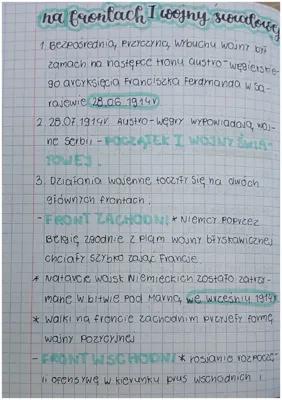 na frontach I wojny światowej
1. Bezpośrednią, przyczyną, wybuchu wojny był
zamach na następcę tronu austro-węgierskie-
go arcyksięcia Franciszka Ferdynanda w Sa-
rajewie 28.06.1914r.
2. 28.07.1914r. Austro-Węgry wypowiadają woj-
nę Serbii - POCZĄTEK I WOJNY ŚWIA-
TOWEJ.
3. Działania wojenne toczyły się na dwóch
głównych frontach.
- FRONT ZACHODNI * Niemcy poprzez
Belgię zgodnie z plam wojny błyskawicznej
chciały szybko zająć Francję.
* Natarcie wojsk niemieckich zostało zatrzy-
mane w bitwie pod Marną, we wrześniu 1914r
* walki na froncie zachodnim przyjęły formę
wojny pozycyjnej
- FRONT WSCHODNI * rosjanie rozpoczę-
li ofensywę w kierunku prus wschodnich i